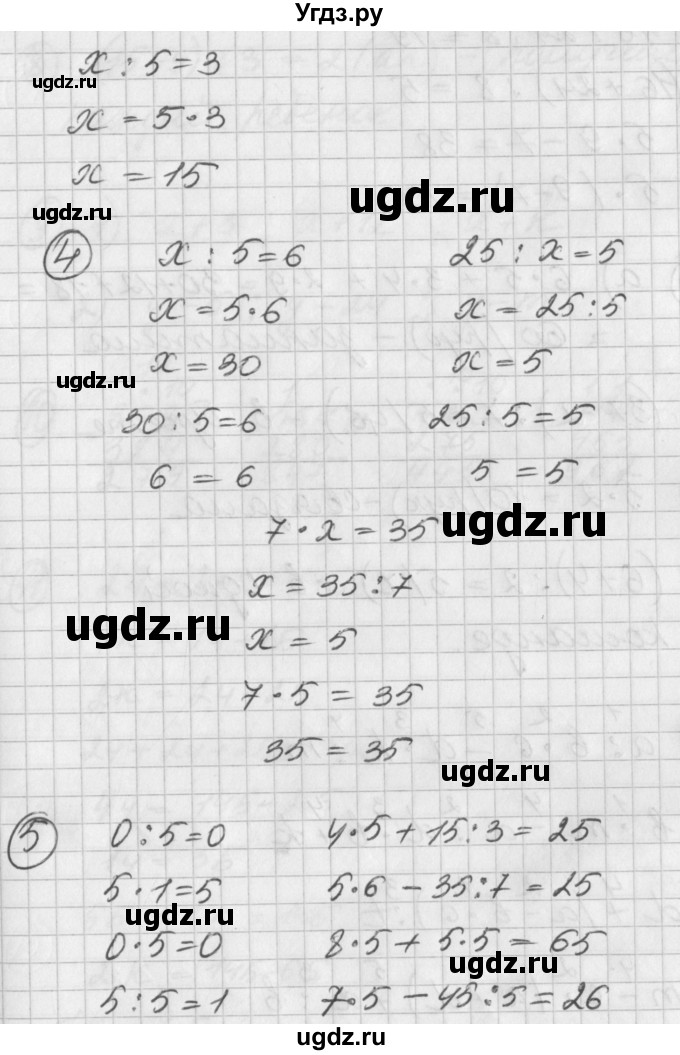 Угдз.ру
x : 5 = 3
ugdz.ru
x = 5 · 3
x = 15
ugdz.ru
ugdz.ru
4 x : 5 = 6 25 : x = 5
x = 5 · 6 x = 25 : 5
x = 30 x = 5
ugdz.ru
30 : 5 = 6 25 : 5 = 5
6 = 6 5 = 5
7 · x = 35
ugdz.ru
x = 35 : 7
ugdz.ru
x = 5
7 · 5 = 35
35 = 35
ugdz.ru
5 0 : 5 = 0 4 · 5 + 15 : 3 = 25
5 · 1 = 5 5 · 6 - 35 : 7 = 25
ugdz.ru
0 · 5 = 0 8 · 5 + 5 · 5 = 65
ugdz.ru
5 : 5 = 1 7 · 5 - 45 : 5 = 26
ugdz.ru